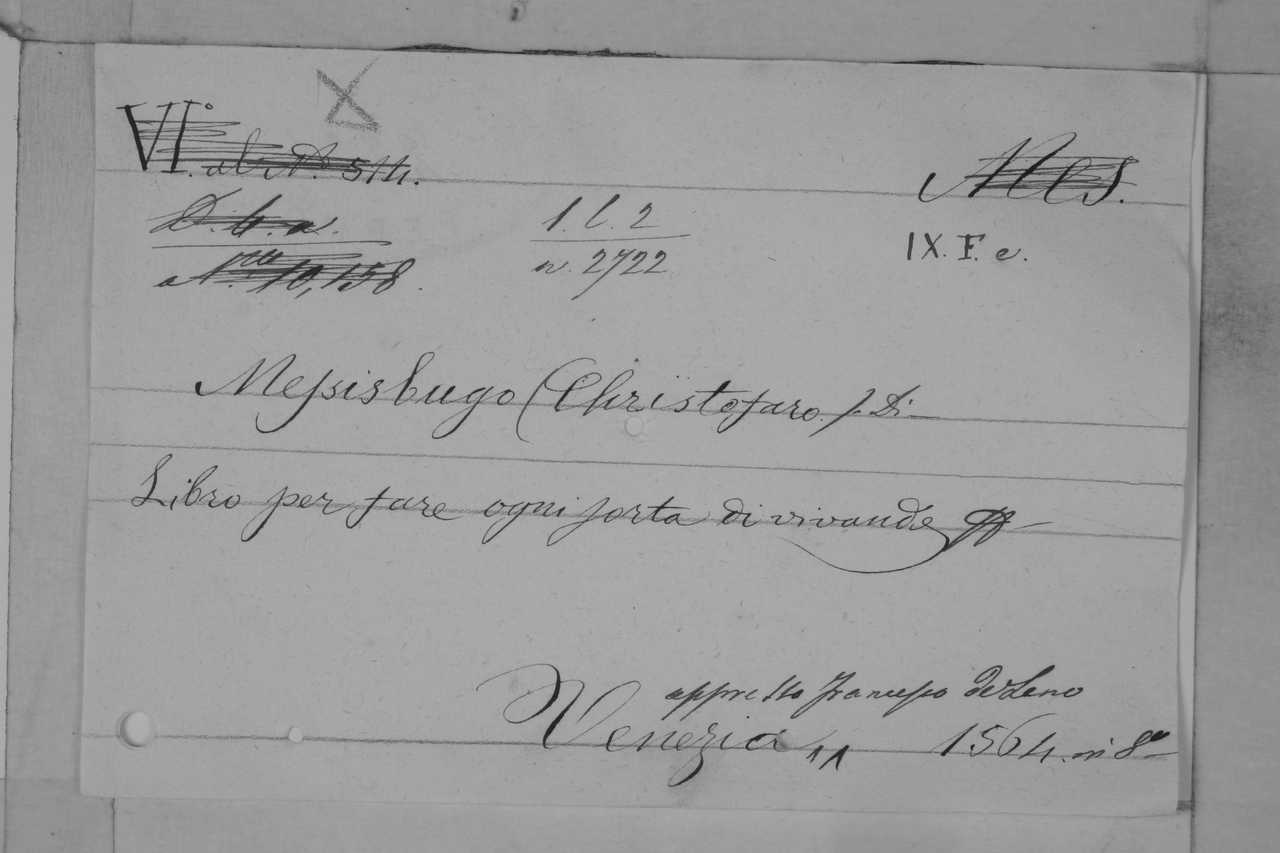 VI.° al N.° 514.
Mes.
D. 4. a.
1. l. 2
IX. F. e.
N.ro 10,158.
n. 2722
Messisbugo (Christofaro.) Di
Libro per fare ogni sorta di vivande
appresso Francesco de Leno
Venezia 1564. in 8.vo